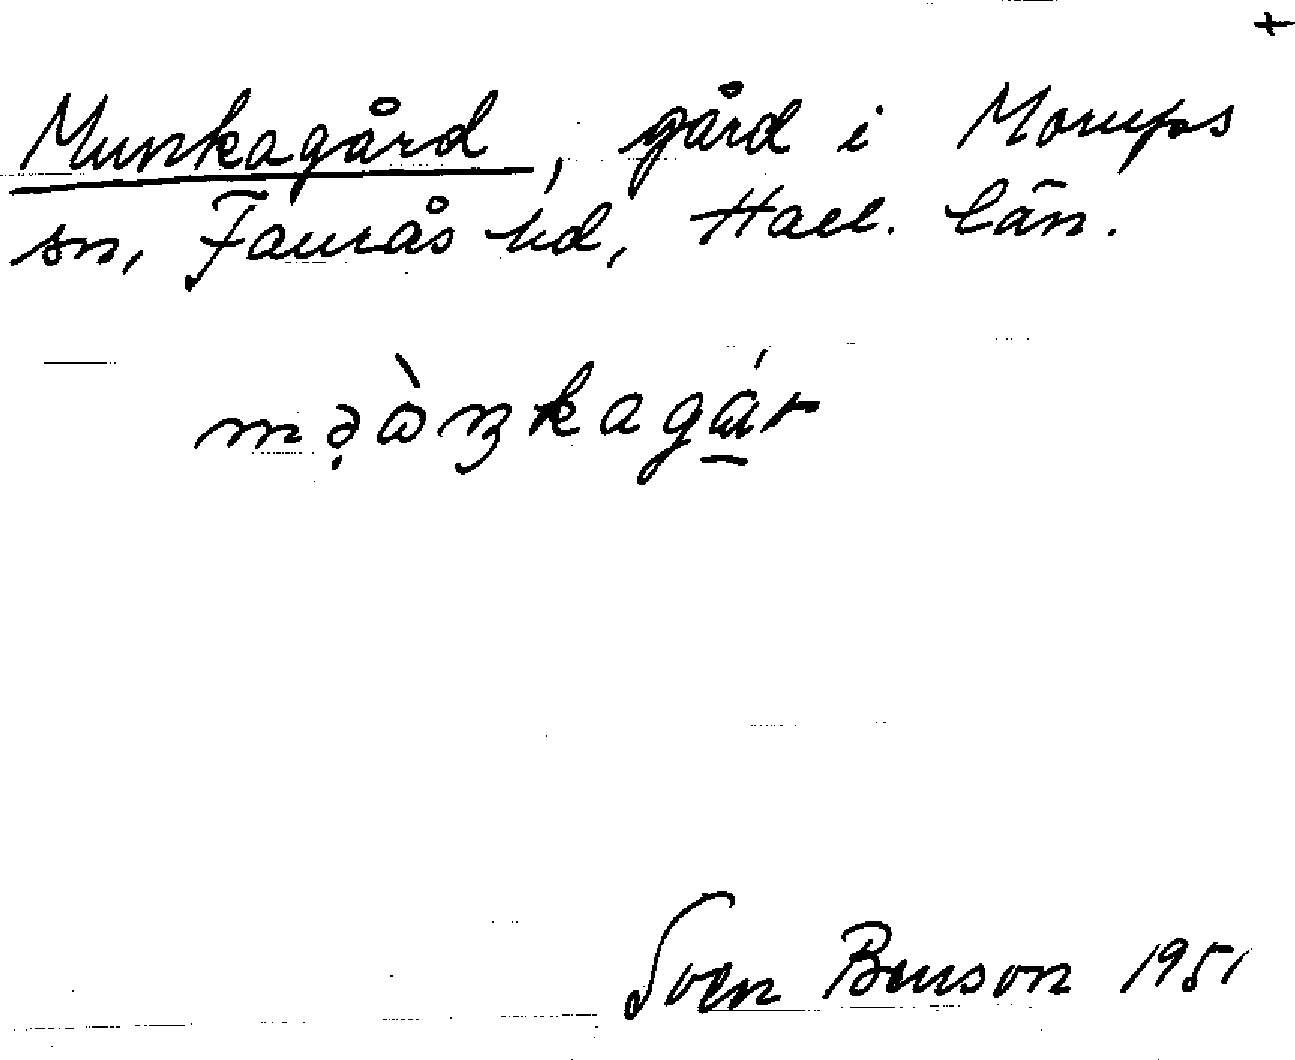 +
Munkagård, gård i Morups
sn, Faurås hd, Hall. län.
Sven Benson 1951